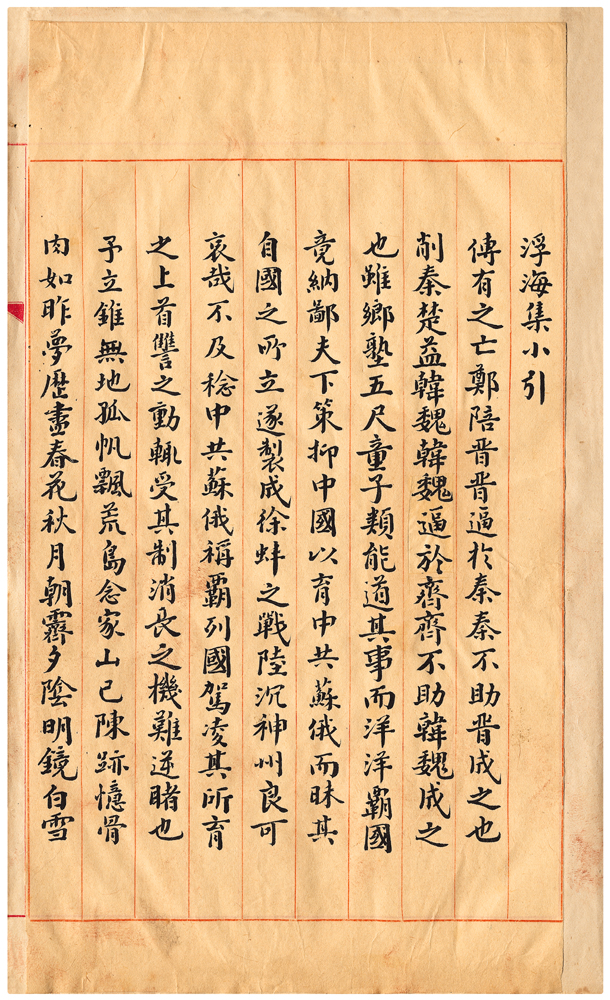 浮海集小引
傳有之亡鄭陪晋晋逼於秦秦不助晋成之也
削秦楚益韓魏韓魏逼於齊齊不助韓魏成之
也雖鄉塾五尺童子類能道其事而洋洋霸國
竟納鄙夫下策抑中國以育中共蘇俄而昧其
自國之所立遂製成徐蚌之戰陸沉神州良可
哀哉不及稔中共蘇俄稱霸列國駕凌其所育
之上首讐之動輒受其制消長之機難逆睹也
予立錐無地孤帆飄荒島念家山已陳跡憶骨
肉如昨夢歷盡春花秋月朝霽夕陰明鏡白雪